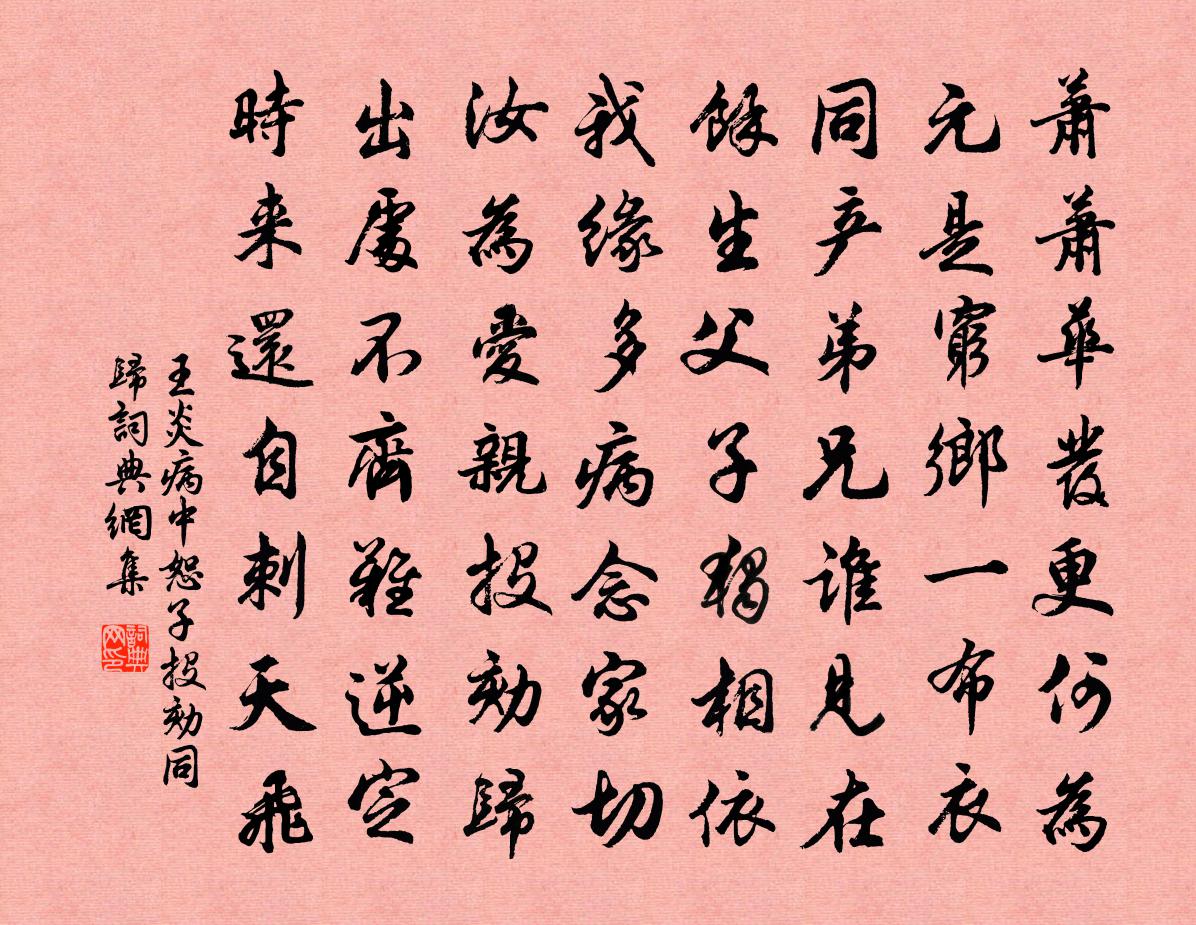 蕭蕭華發更何為
元是窮鄉一布衣
同产弟兄誰見在
餘生父子獨相依
我緣多病念家切
汝為愛親投劾歸
出處不齊難逆定
時来還自刺天飛
王炎病中恕子投劾同
歸詞典網集
詞典网印